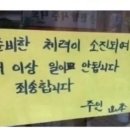 준비한 체력이 소진되어
더 이상 일이 안됩니다
죄송합니다
-주인